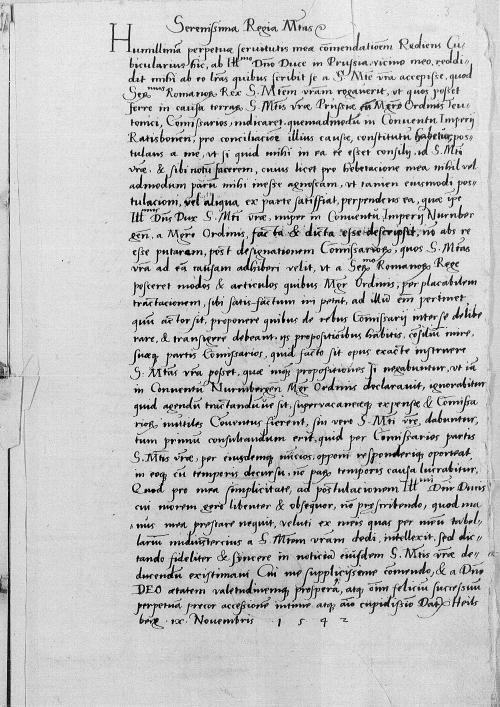 Serenissima Regia Mtas
Humillima perpetuae servitutis mea comendatioem Rediens Cu-
bicularius hic, ab Illmo Dno Duce in Prussia, vicino meo, reddi-
dit mihi ab eo lras quibus scribit se a S. Mte vra accepisse, quod
Sermus Romanor Rex S. Mtem vram rogaverit, ut quos posset
ferre in causa terrar S. Mtis vrae Prussiae Mgro Ordinis Teu-
tonici, Comissarios, indicaret, quemadmodu in Conventu Imperij
Ratisbonen, pro conciliacioe illius causae, constitutu habetur, pos-
tulans a me, ut si quid mihi in ea re esset consilij, id S. Mti
vrae, & sibi notu facerem, cuius licet pro hebetacione mea nihil vel
admodum paru mihi inesse agnoscam, ut tamen eiusmodi pos-
tulacioni, vel aliqua ex parte satisfiat, perpendens ea, quae ipse
Illmus Dns Dux S. Mti vrae, nuper in Conventu Imperij Nurnber
gen, a Mgro Ordinis, facta & dicta esse descripsit, no abs re
esse putarem, post designationem Comissarior, quos S. Mtas
vra ad ea causam adhiberi velit, ut a Sermo Romanor Rege
posceret modos & articulos quibus Mgr Ordinis, per placabilem
tractacionem, sibi satisfactum iri petat, ad illu em pertinet,
quu actor sit, proponere quibus de rebus Comissarij inter se delibe
rare, & transigere debeant, ijs propositionibus habitis, consiliu inire,
suaeq partis Comissarios, quid facto sit opus exacte instruere
S. Mtas vra posset, quae propositiones si negabuntur, ut ia
in Conventu Nurnbergen Mgr Ordinis declaravit, ignorabitur
quid agendu tractanduve sit, supervacaneaeq expensae & Comissa
rior inutiles Coventus fierent, sin vero S. Mti vrae, dabuntur,
tum primu consultandum erit, quid per Comissarios partis
S. Mtis vrae, per eiusdemq nucios, opponi responderiq oporteat,
in eoq cu temporis decursu, no par temporis causa lucrabitur,
Quod pro mea simplicitate, ad postulacionem Illmi Dni Ducis
cui morem gero libenter & obsequor, no praescribendo, quod ma
nus mea praestare nequit, veluti ex meis quas per meu tabel-
lariu nudiustercius a S. Mtem vram dedi, intellexit, sed dic-
tando fideliter & syncere in noticia eiusdem S. Mtis vrae de-
ducendu existimavi Cui me supplicissime comendo, & a Dno
DEO aetatem valetudinemq prospera, atq oim feliciu successuu
perpetua precor accessione intime atq aio cupidissio Dat Heils
berg ix Novembris 1542